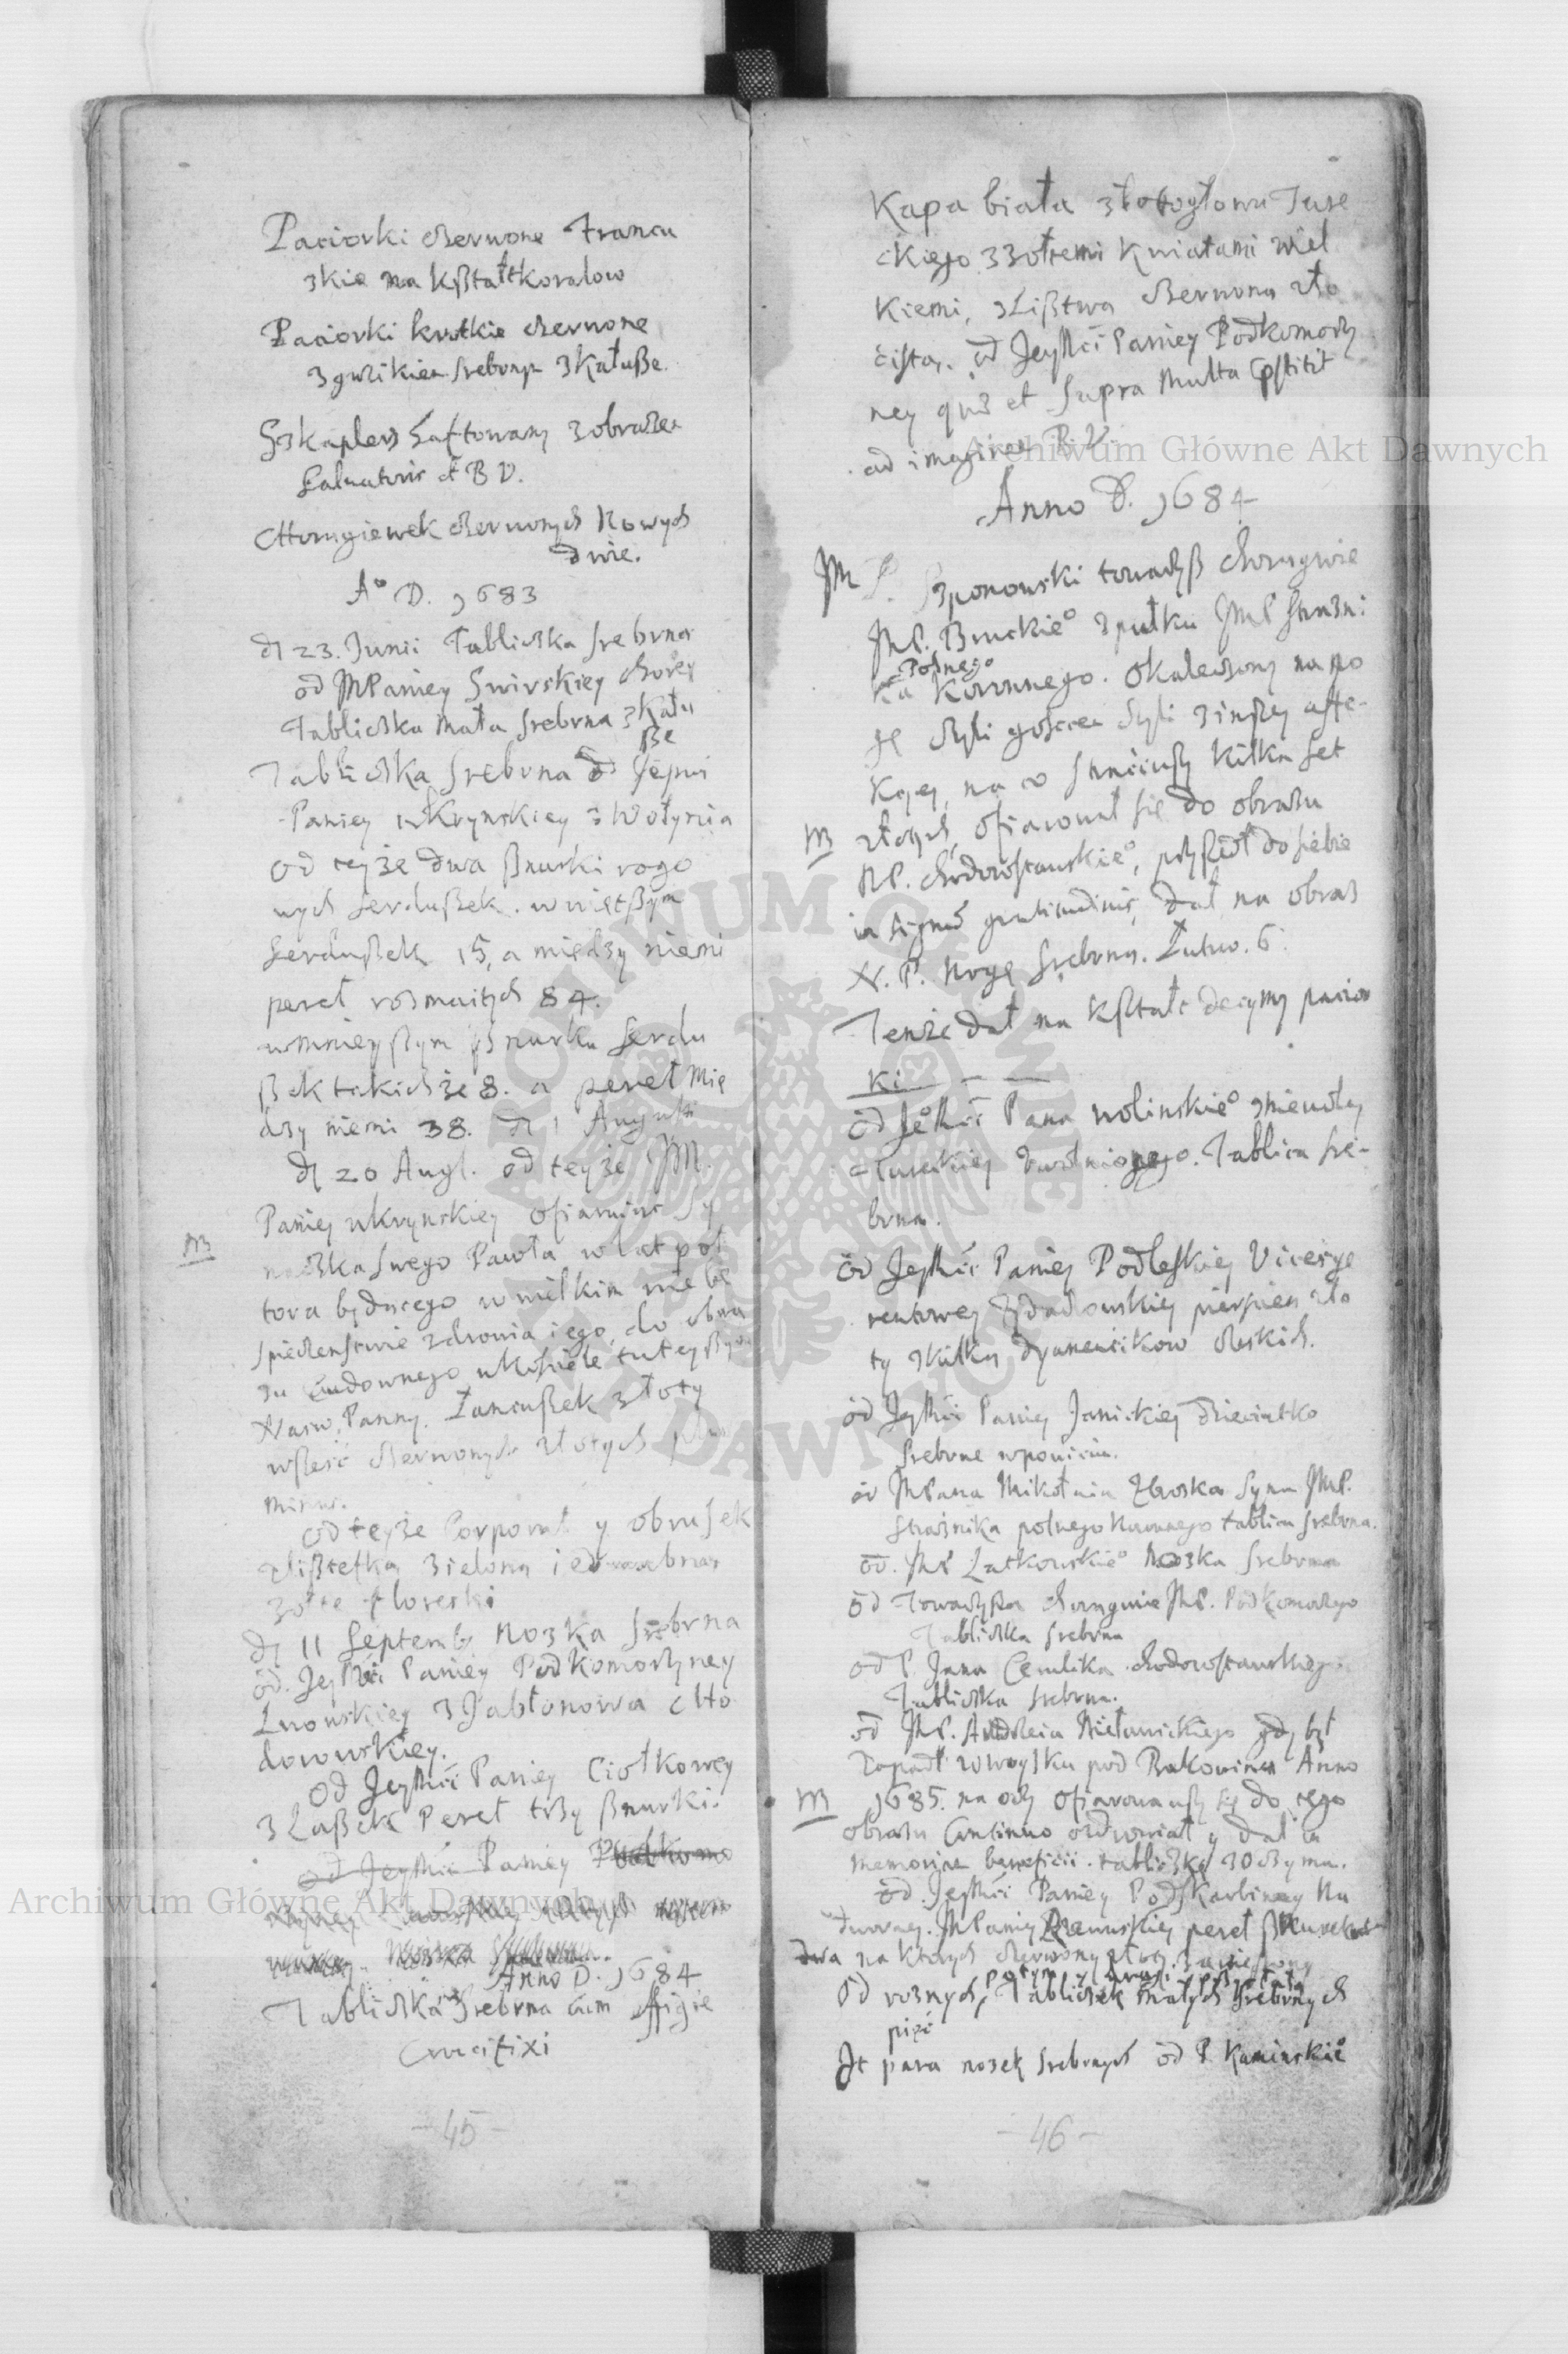 Paciorki czerwone Francu
zkie na kßtałt koralow
Paciorki krotkie czerwone
z gwzikiem srebrnym z Kałuße.
Szkaplerz haftowany z obrazem
Saluatoris et B V.
Chorugiewek czerwonych Nowych
dwie.
A° D. 1683
d 23. Junii Tabliczka srebrna
od MPaniey Swirskiey chorey
Tabliczka mała srebrna z Kału
ße
Tabliczka srebrna od Jejmci
Paniey ukrynskiey z Wołynia
od teyże dwa ßnurki rogo
wych serdußek. w wietßym
serdußek 15, a miedzy niemi
pereł rozmaitych 84.
w mnieyßym ßnurku serdu
ßek takichże 8. a pereł mie
dzy niemi 38. d 1 Augusti
d 20 Aug. od teyże JM.
Paniey ukrynskiey ofiaruiac sy
M
naczka swego Pawła w lat poł
tora będącego w wielkim niebe
spieczenstwie zdrowia iego, do obra
zu cudownego w kosciele tuteyßym
Nasw. Panny. Łancußek złoty
wßesc czerwonych złotych
od teyże Corporał y obrusek
z lißtefką zieloną iedwabną
zołte floreski
d 11 Septemb. Nozka srebrna
od. Jejmci Paniey Podkomorzyney
Lwowskiey z Jabłonowa Cho
dorowskiey.
od Jejmci Paniey Ciołkowey
z Laßek Pereł trzy ßnurki.
od Jejmci Paniey Podkomo
Anno D. 1684
Tabliczka srebrna cum effigie
Crucifixi
- 45 -
Kapa biała złotogłowu Ture
ckiego z zołtemi kwiatami wiel
kiemi, z lißtwą czerwoną zło
cistą. od Jejmci Paniey Podkomorzy
ney quae et supra multa
ad imaginem B. V.
Anno D. 1684
JM P. towarzyß chorągwie
JMP. Bruckie° z pułku JMP Strazni:
Polnego
ka Koronnego. okaleczony na no
gę czyli goscem czyli z inßey affe-
kcyey, na co straciwßy kilka set
M
złotych, ofiarował się do obrazu
NP. Chodorostawskie°, przyßedł do siebie
in signum gratitudinis, dał na obraz
N. P. Nogę srebrną. Łutow. 6.
Tenże dał na kßtałt decymy pacior
ki
od Je°mci Pana wolinskie° z niewoley
Tureckiey uwolnionego. Tablica sre-
brna.
od Jejmci Paniey Podleskiey Vicesge
rentowey Zydaczowskiey piersien zło
ty z kilką dyamencikow czeskich.
od Jejmci Paniey Janickiey dzieciątko
srebrne w powiciu.
od MPana Mikołaia Zbroska syna JMP.
straznika polnego Koronnego tablica srebrna.
od. JMP Latkowskie° Nozka srebrna
od Towarzyßa chorągwie JMP. Podkomorzego
Tabliczka srebrna
od P. Jana Cemlika chodorostawskiego.
Tabliczka srebrna.
od JMP. Andrzeia Nieławickiego gdy był
zapadł w woysku pod Bukowiną Anno
M
1685. na oczy ofiarowawßy się do tego
obrazu Continuo ozdrowiał y dał in
memoriam beneficii. tabliczkę z oczyma.
od. Jejmci Paniey Podskarbiney Na
dworney. MPaniey Rzewuskiey pereł ßnurek
dwa na ktorych czerwony złoty zawießony
od roznych, Tabliczek małych srebrnych
pięć
It para nozek srebrnych od P. Kaminskie°
- 46 -
Archiwum Główne Akt Dawnych
Archiwum Główne Akt Dawnych
ARCHIWUM GŁÓWNE AKT DAWNYCH